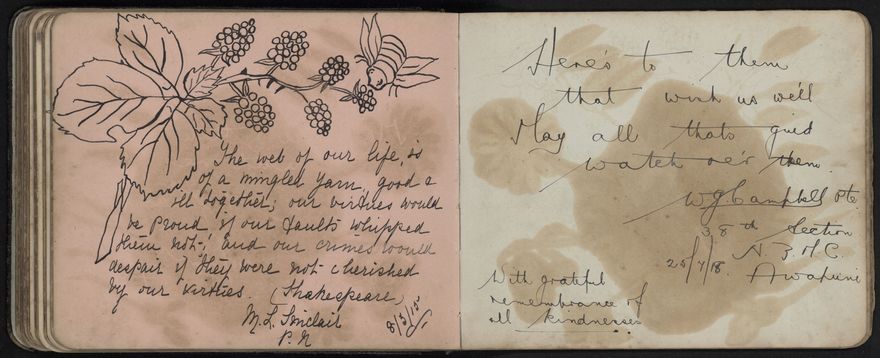 The web of our life, is
of a mingled yarn, good &
ill together; our virtues would
be proud if our faults whipped
them not; and our crimes would
despair if they were not cherished
by our virtues. (Shakespeare)
M. L. Sinclair
P. N
8/3/15
Here's to them
that wish us weel
May all thats guid
watch oe'r them
W J Campbell Pte
38th Section
N. Z. M C.
25/7/18. Awapuni
With grateful
remembrance of
all kindnesses